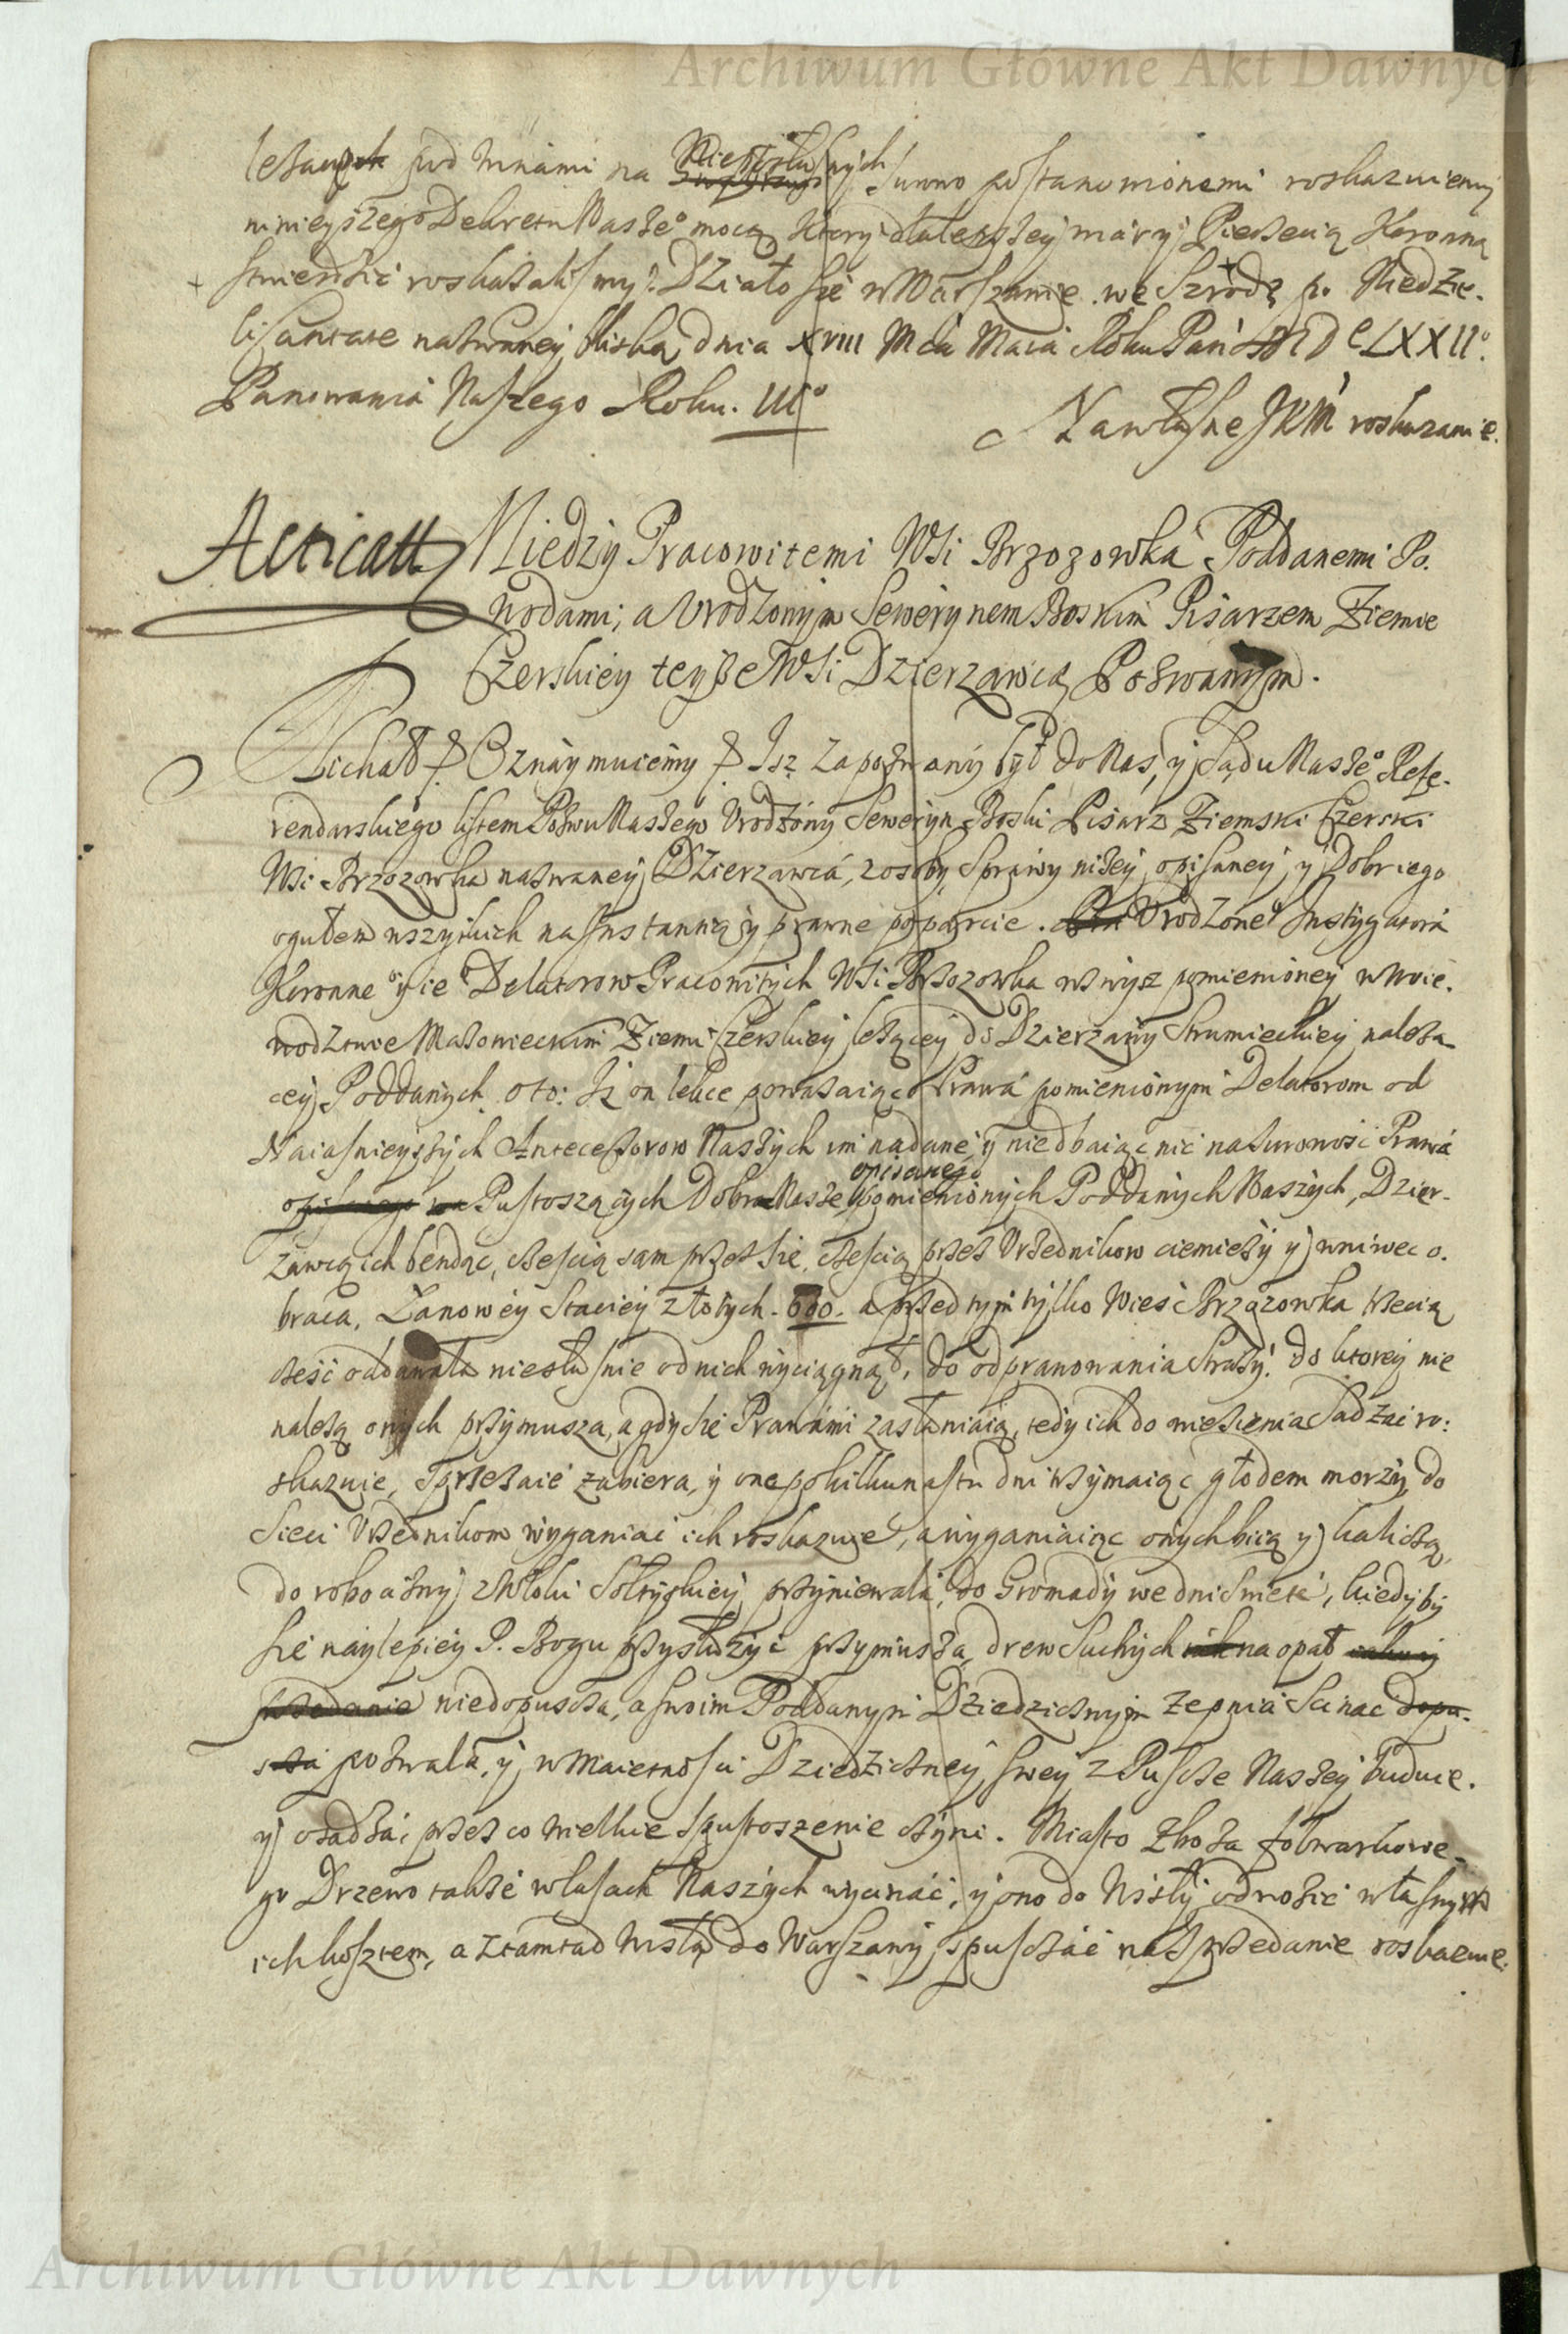 Archiwum Główne Akt Dawnych
pod winami na Niesłusznych surowo postanowionemi roskazuiemy
ninieyszego Dekretu Nasze° mocą który dla lepszey wiáry Pieczęcią Koronną
stwierdzić roskazalismy. Działo się w Warszawie we Szrodę po Niedzie-
li Cantate nazwaney bliską dnia XVIII Mca Maia Roku Pań MDCLXXII°.
Panowania Naszego Roku. III°
Na własne JKM roskazanie.
Między Pracowitemi Wsi Brzozowka Poddanemi Po-
wodami; a Urodzonym Sewerynem Boskim Pisarzem Ziemie
Czerskiey teyże Wsi Dzierzawcą Pozwanym.
Michał Oznaymuiemy Isz zapozwany był do Nas, y Sądu Nasze° Refe-
rendarskiego listem Pozwu Naszego Urodzony Seweryn Boski Pisarz Ziemski Czerski
Wsi Brzozowka nazwaney Dzierzawca, z osoby, sprawy niżey opisaney, y Dobr iego
ogułem wszystkich na Instantią y prawne poparcie. Urodzone° Instygatora
Koronne° y ie° Delatorow Pracowitych Wsi Brzozowka wzwysz pomienioney w Woie-
wodztwie Mazowieckim Ziemi Czerskiey leżącey do Dzierzawy Strumieckiey należą-
cey Poddanych. oto: Iż on lekce poważaiąc Prawá pomienionym Delatorom od
Naiasnieyszych Antecessorow Naszych im nadane, y niedbaiąc nic na surowość Prawa
opisanego
Pustoszących Dobra Nasze pomienionych Poddanych Naszych, Dzier-
żawcą ich będąc, częścią sam przez się, częścią przez Urzednikow ciemięży y wniwec o-
braca, Łanowey Staciey złotych - 600 - a przed tym tylko Wieś Brzozowka trzecią
cześć oddawała niesłusznie od nich wyciągnął, do odprawowania Straży, do ktorey nie
należą onych przymusza, a gdy się Prawámi zasłaniaią, tedy ich do więzienia sadzać ro-
skazuie, sprzężaie zabiera, y one po kilkunastu dni trzymaiąc głodem morzy, do
Sieci Urzednikom wyganiać ich roskazuie, a wyganiaiąc onych biią y kaliczą,
do robocizny z Włoki Sołtyskiey przyniewala, do Gromady we dni Swięte, kiedyby
się naylepiey P. Bogu przysłużyć przymusza, drew suchych na opał
niedopuscza, a swoim Poddanym Dziedzicznym ze pnia scinac
pozwala, y w Maietności Dziedziczney swey z Puscze Naszey buduie.
y osadza, przez co wielkie spustoszenie czyni. Miasto zboża folwarkowe-
go Drzewo także w lasach Naszych wycinać, y ono do Wisły odwozić własnym
ich kosztem, a ztamtad Wisłą do Warszawy spusczać na sprzedanie roskazuie.
Archiwum Główne Akt Dawnych